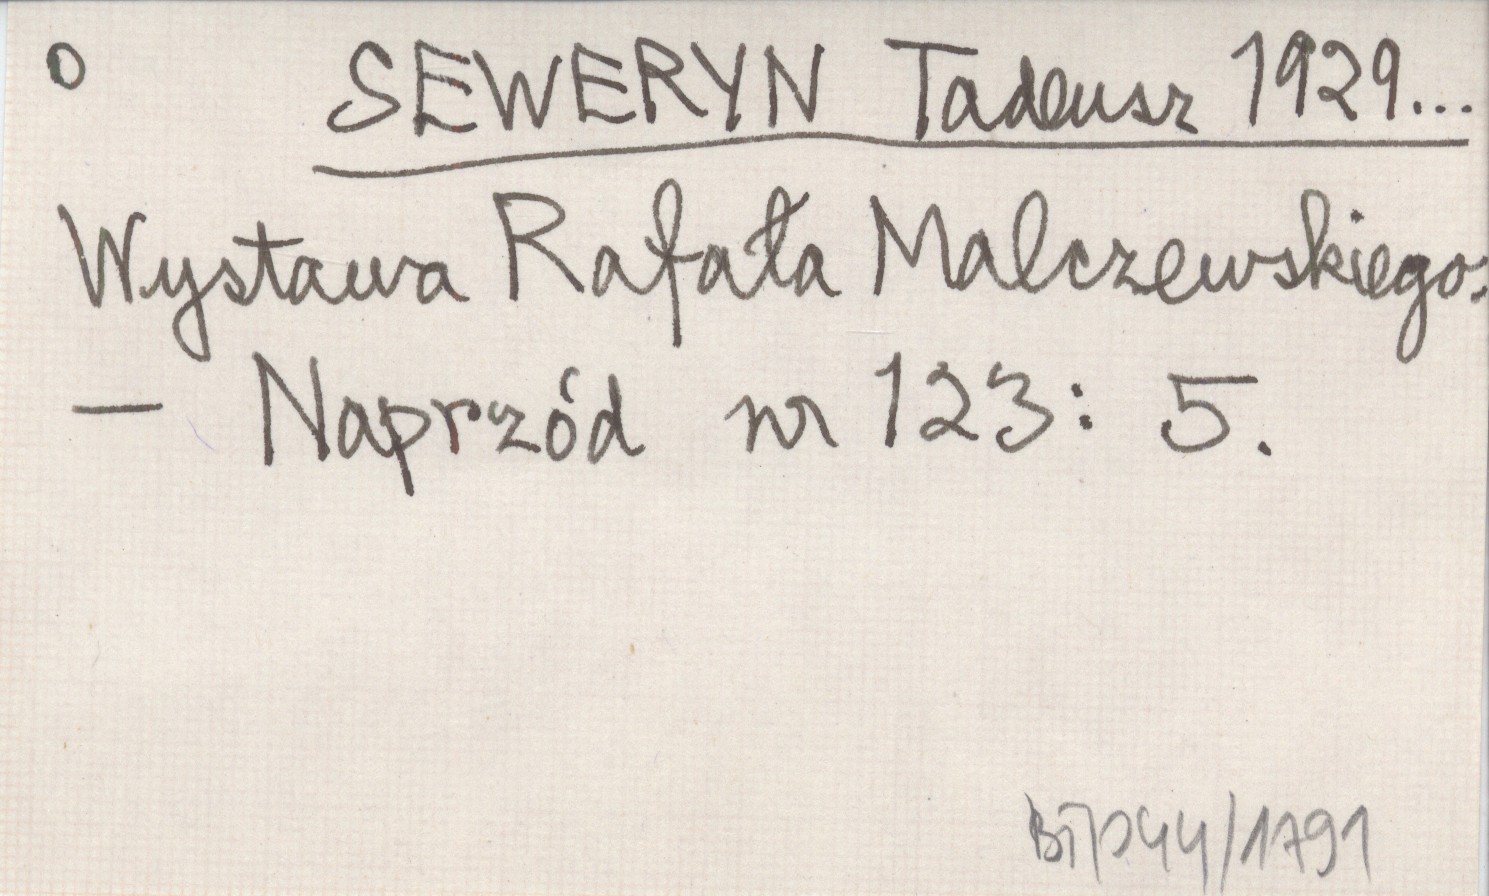 o SEWERYN Tadeusz 1929...
Wystawa Rafała Malczewskiego:
— Naprzód nr 123: 5.
BTP44/1791